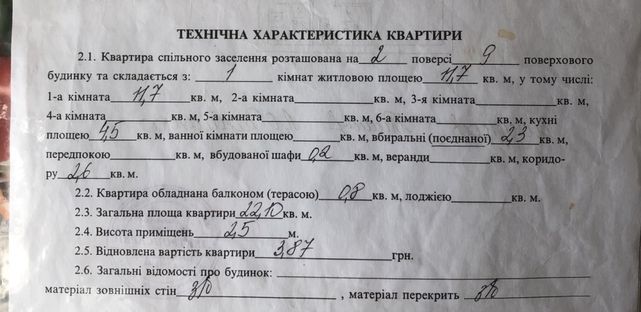 ТЕХНІЧНА ХАРАКТЕРИСТИКА КВАРТИРИ
2.1. Квартира спільного заселення розташована на 2 поверсі 9 поверхового
будинку та складається з: 1 кімнат житловою площею 11,7 кв. м, у тому числі:
1-а кімната 11,7 кв. м, 2-а кімната кв. м, 3-я кімната кв. м,
4-а кімната кв. м, 5-а кімната кв. м, 6-а кімната кв. м, кухні
площею 4,5 кв. м, ванної кімнати площею кв. м, вбиральні (поєднаної) 2,3 кв. м,
передпокою кв. м, вбудованої шафи 0,2 кв. м, веранди кв. м, коридо-
ру 2,6 кв. м.
2.2. Квартира обладнана балконом (терасою) 0,8 кв. м, лоджією кв. м.
2.3. Загальна площа квартири 22,10 кв. м.
2.4. Висота приміщень 2,5 м.
2.5. Відновлена вартість квартири 3,87 грн.
2.6. Загальні відомості про будинок:
матеріал зовнішніх стін з/б, матеріал перекрить з/б